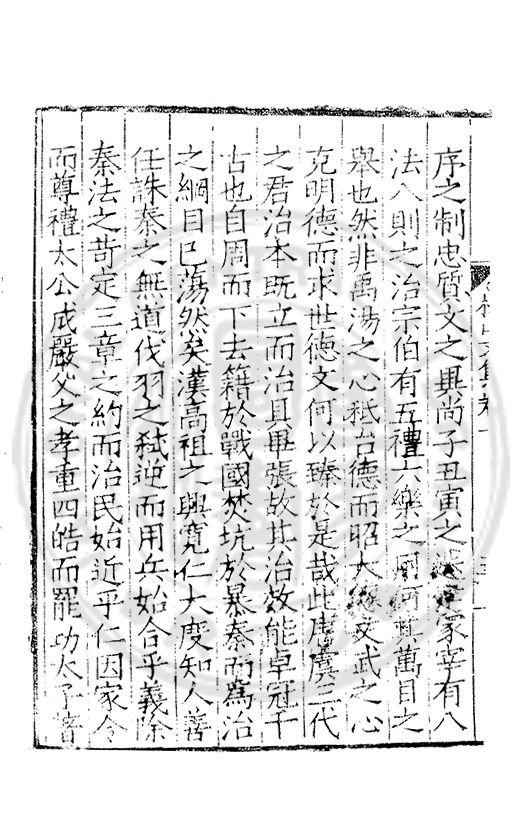 序之制忠質文之異尚子丑寅之建冢宰有八
法八則之治宗伯有五禮六樂之萬目之
舉也然非禹湯之心秪台德而昭大文武之心
克明德而求世德文何以臻於是哉此唐虞三代
之君治本既立而治具畢張故其治效能卓冠千
古也自周而下去籍於戰國焚坑於暴秦而為治
之綱目已蕩然矣漢高祖之興寬仁大度知人善
任誅秦之無道伐羽之弒逆而用兵始合乎義除
秦法之苛定三章之約而治民始近乎仁因家令
而尊禮太公成嚴父之孝重四皓而罷功太子